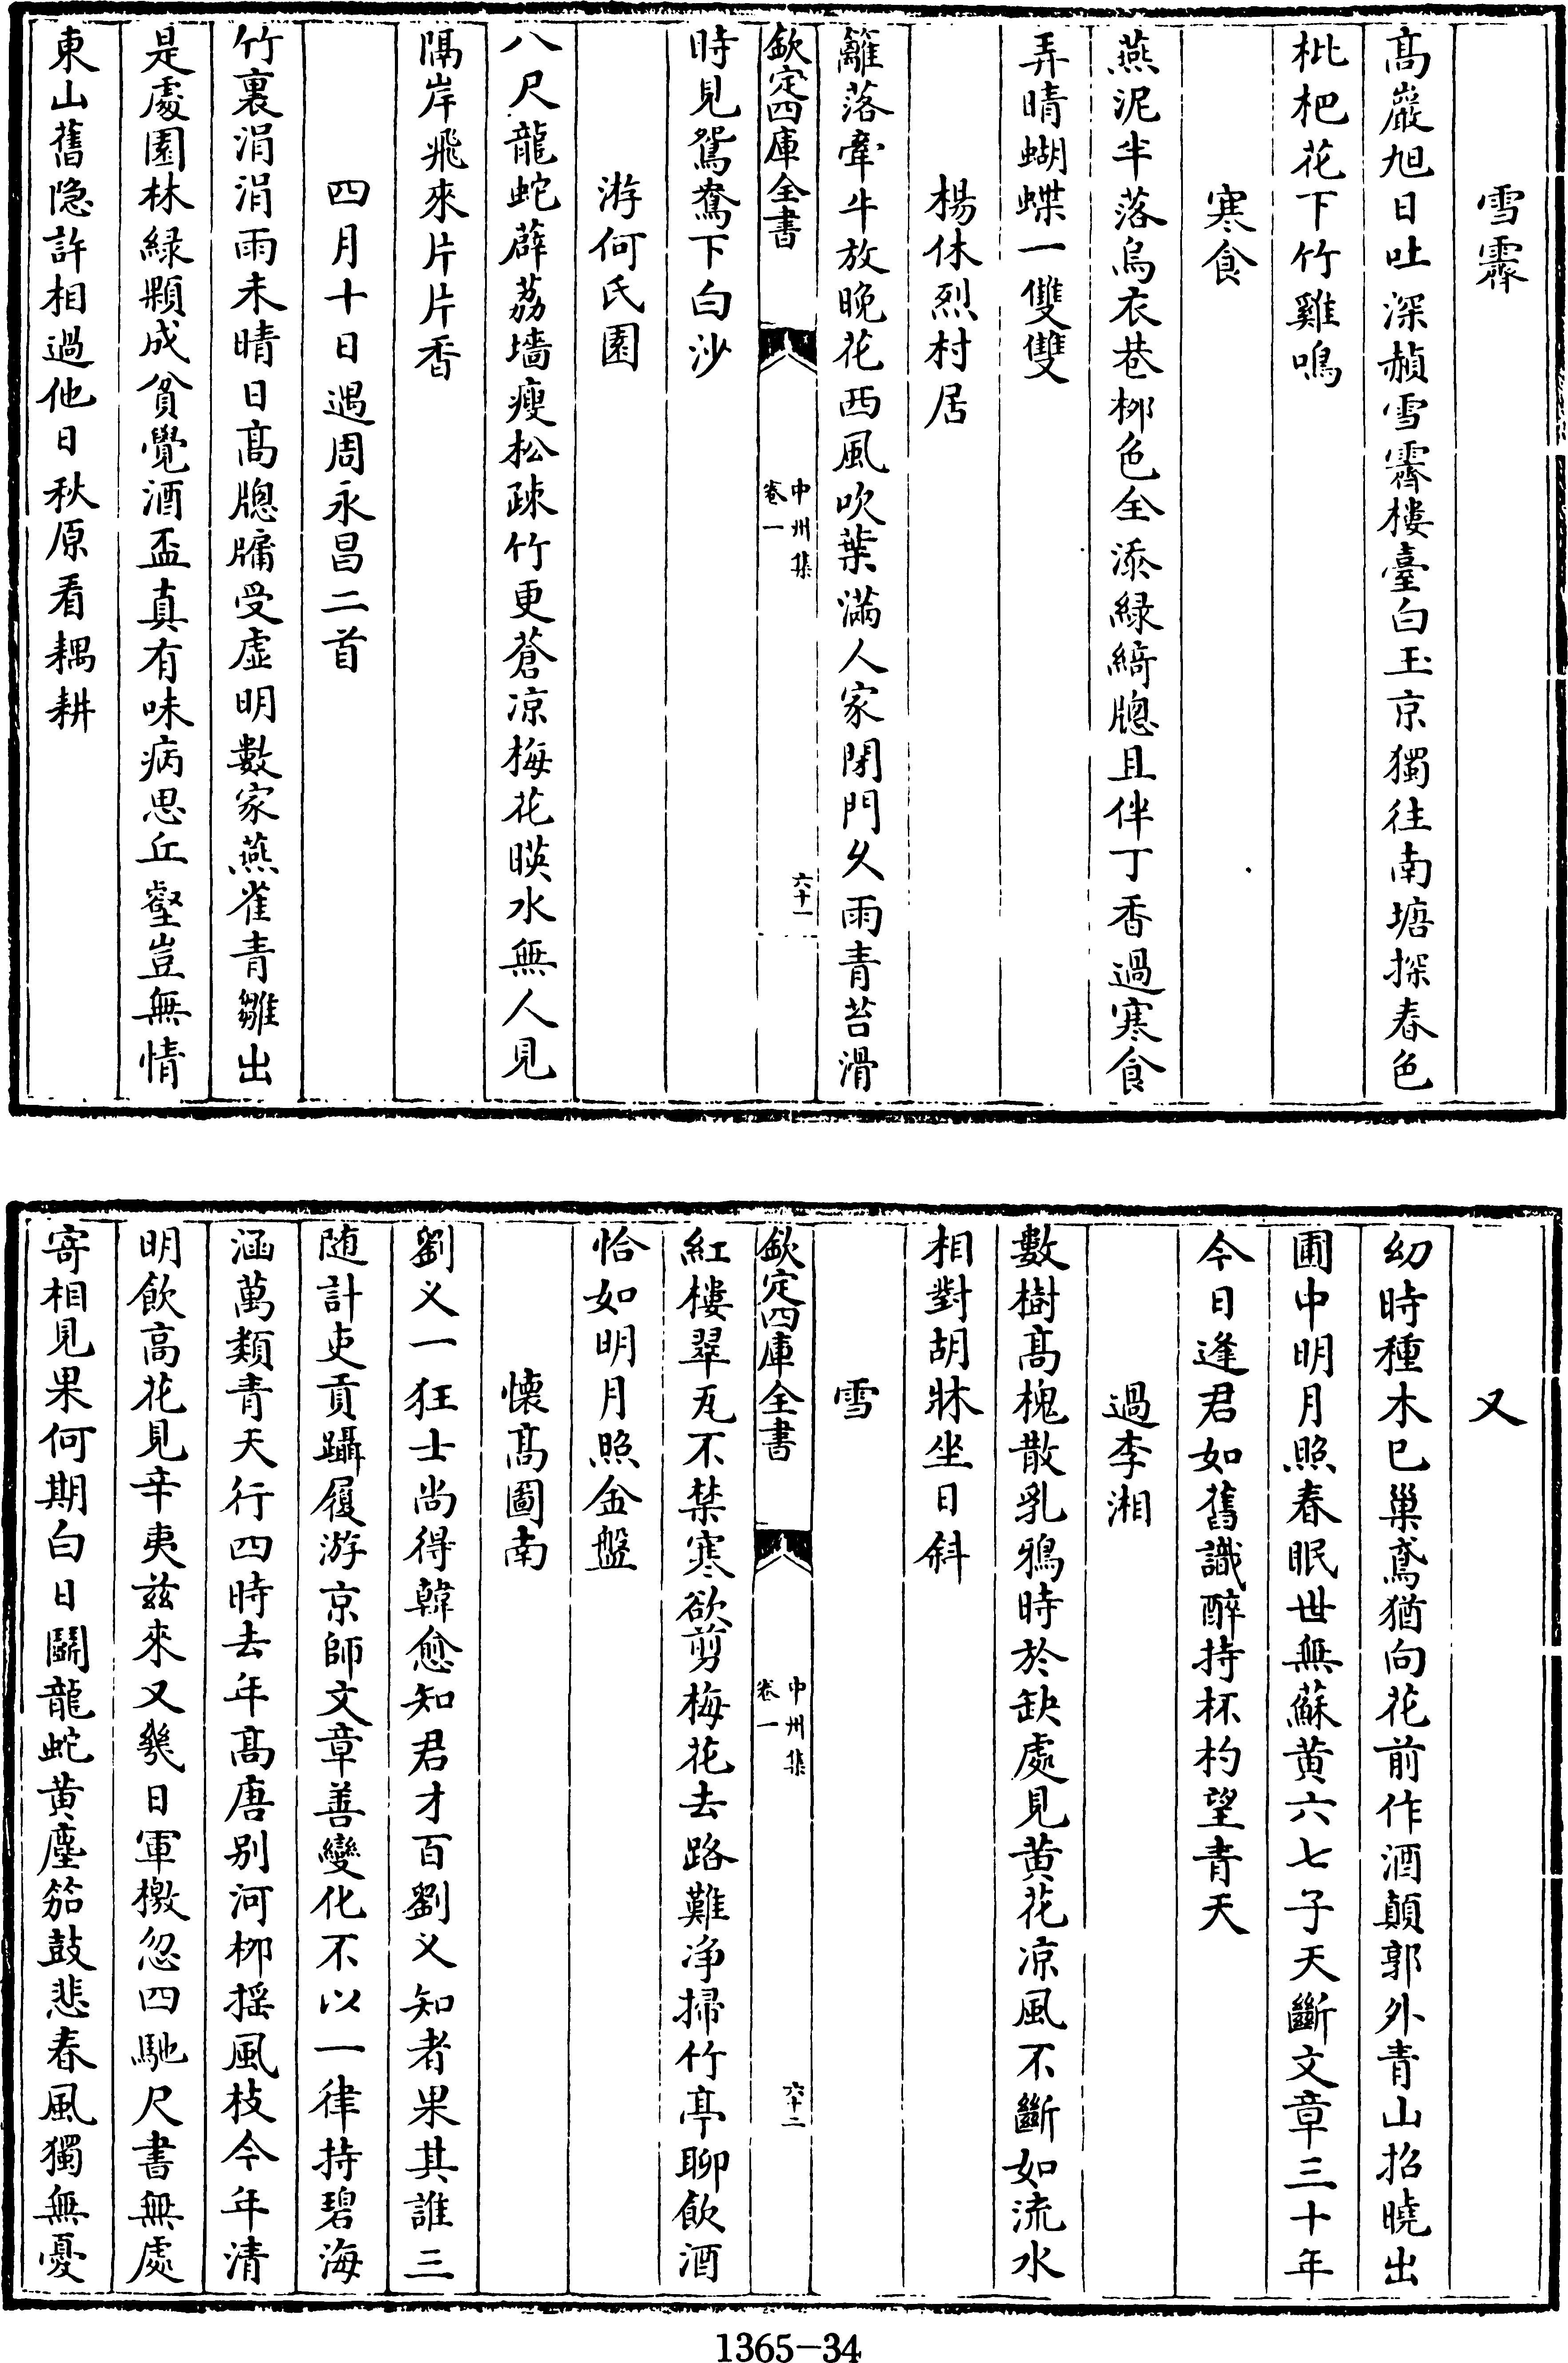 雪霽
髙巖旭日吐深赬雪霽樓臺白玉京獨往南塘探春色
枇杷花下竹雞鳴
寒食
燕泥半落烏衣巷桞色全添緑綺牎且伴丁香過寒食
弄晴蝴蝶一雙雙
楊休烈村居
籬落牽牛放晚花西風吹葉滿人家閉門久雨青苔滑
欽定四庫全書
中州集
卷一
六十一
時見鴛鴦下白沙
游何氏園
八尺龍蛇薜荔墻瘦松疎竹更蒼凉梅花暎水無人見
隔岸飛來片片香
四月十日遇周永昌二首
竹裏涓涓雨未晴日髙牎牖受虚明數家燕雀青雛出
是處園林緑顆成貧覺酒盃真有味病思丘壑豈無情
東山舊隐許相過他日秋原看耦耕
又
幼時種木已巢鳶猶向花前作酒顛郭外青山招曉出
圃中明月照春眠世無蘇黄六七子天斷文章三十年
今日逢君如舊識醉持杯杓望青天
過李湘
數樹髙槐散乳鴉時於缺處見黄花凉風不斷如流水
相對胡牀坐日斜
雪
欽定四庫全書
中州集
卷一
六十二
紅樓翠瓦不禁寒欲剪梅花去路難净掃竹亭聊飲酒
恰如明月照金盤
懐髙圖南
劉义一狂士尚得韓愈知君才百劉义知者果其誰三
随計吏貢躡履游京師文章善變化不以一律持碧海
涵萬類青天行四時去年髙唐别河桞揺風枝今年清
明飲高花見辛夷兹來又幾日軍檄忽四馳尺書無處
寄相見果何期白日鬭龍蛇黄塵笳鼓悲春風獨無憂
1365-34